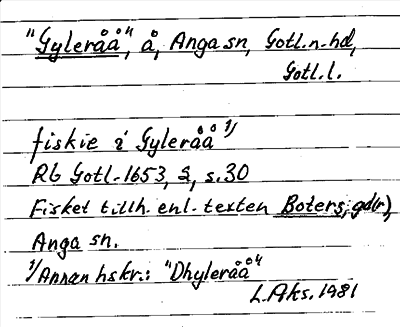 "Gyleråå", å, Anga sn, Gotl.n.hd,
Gotl.l.
fiskie i Gyleråå 1/
Rb Gotl. 1653, 2, s.30
Fisket tillh. enl. texten Boters, gd(r),
Anga sn.
1/Annan hskr.: "Dhyleråå"
L.Aks. 1981